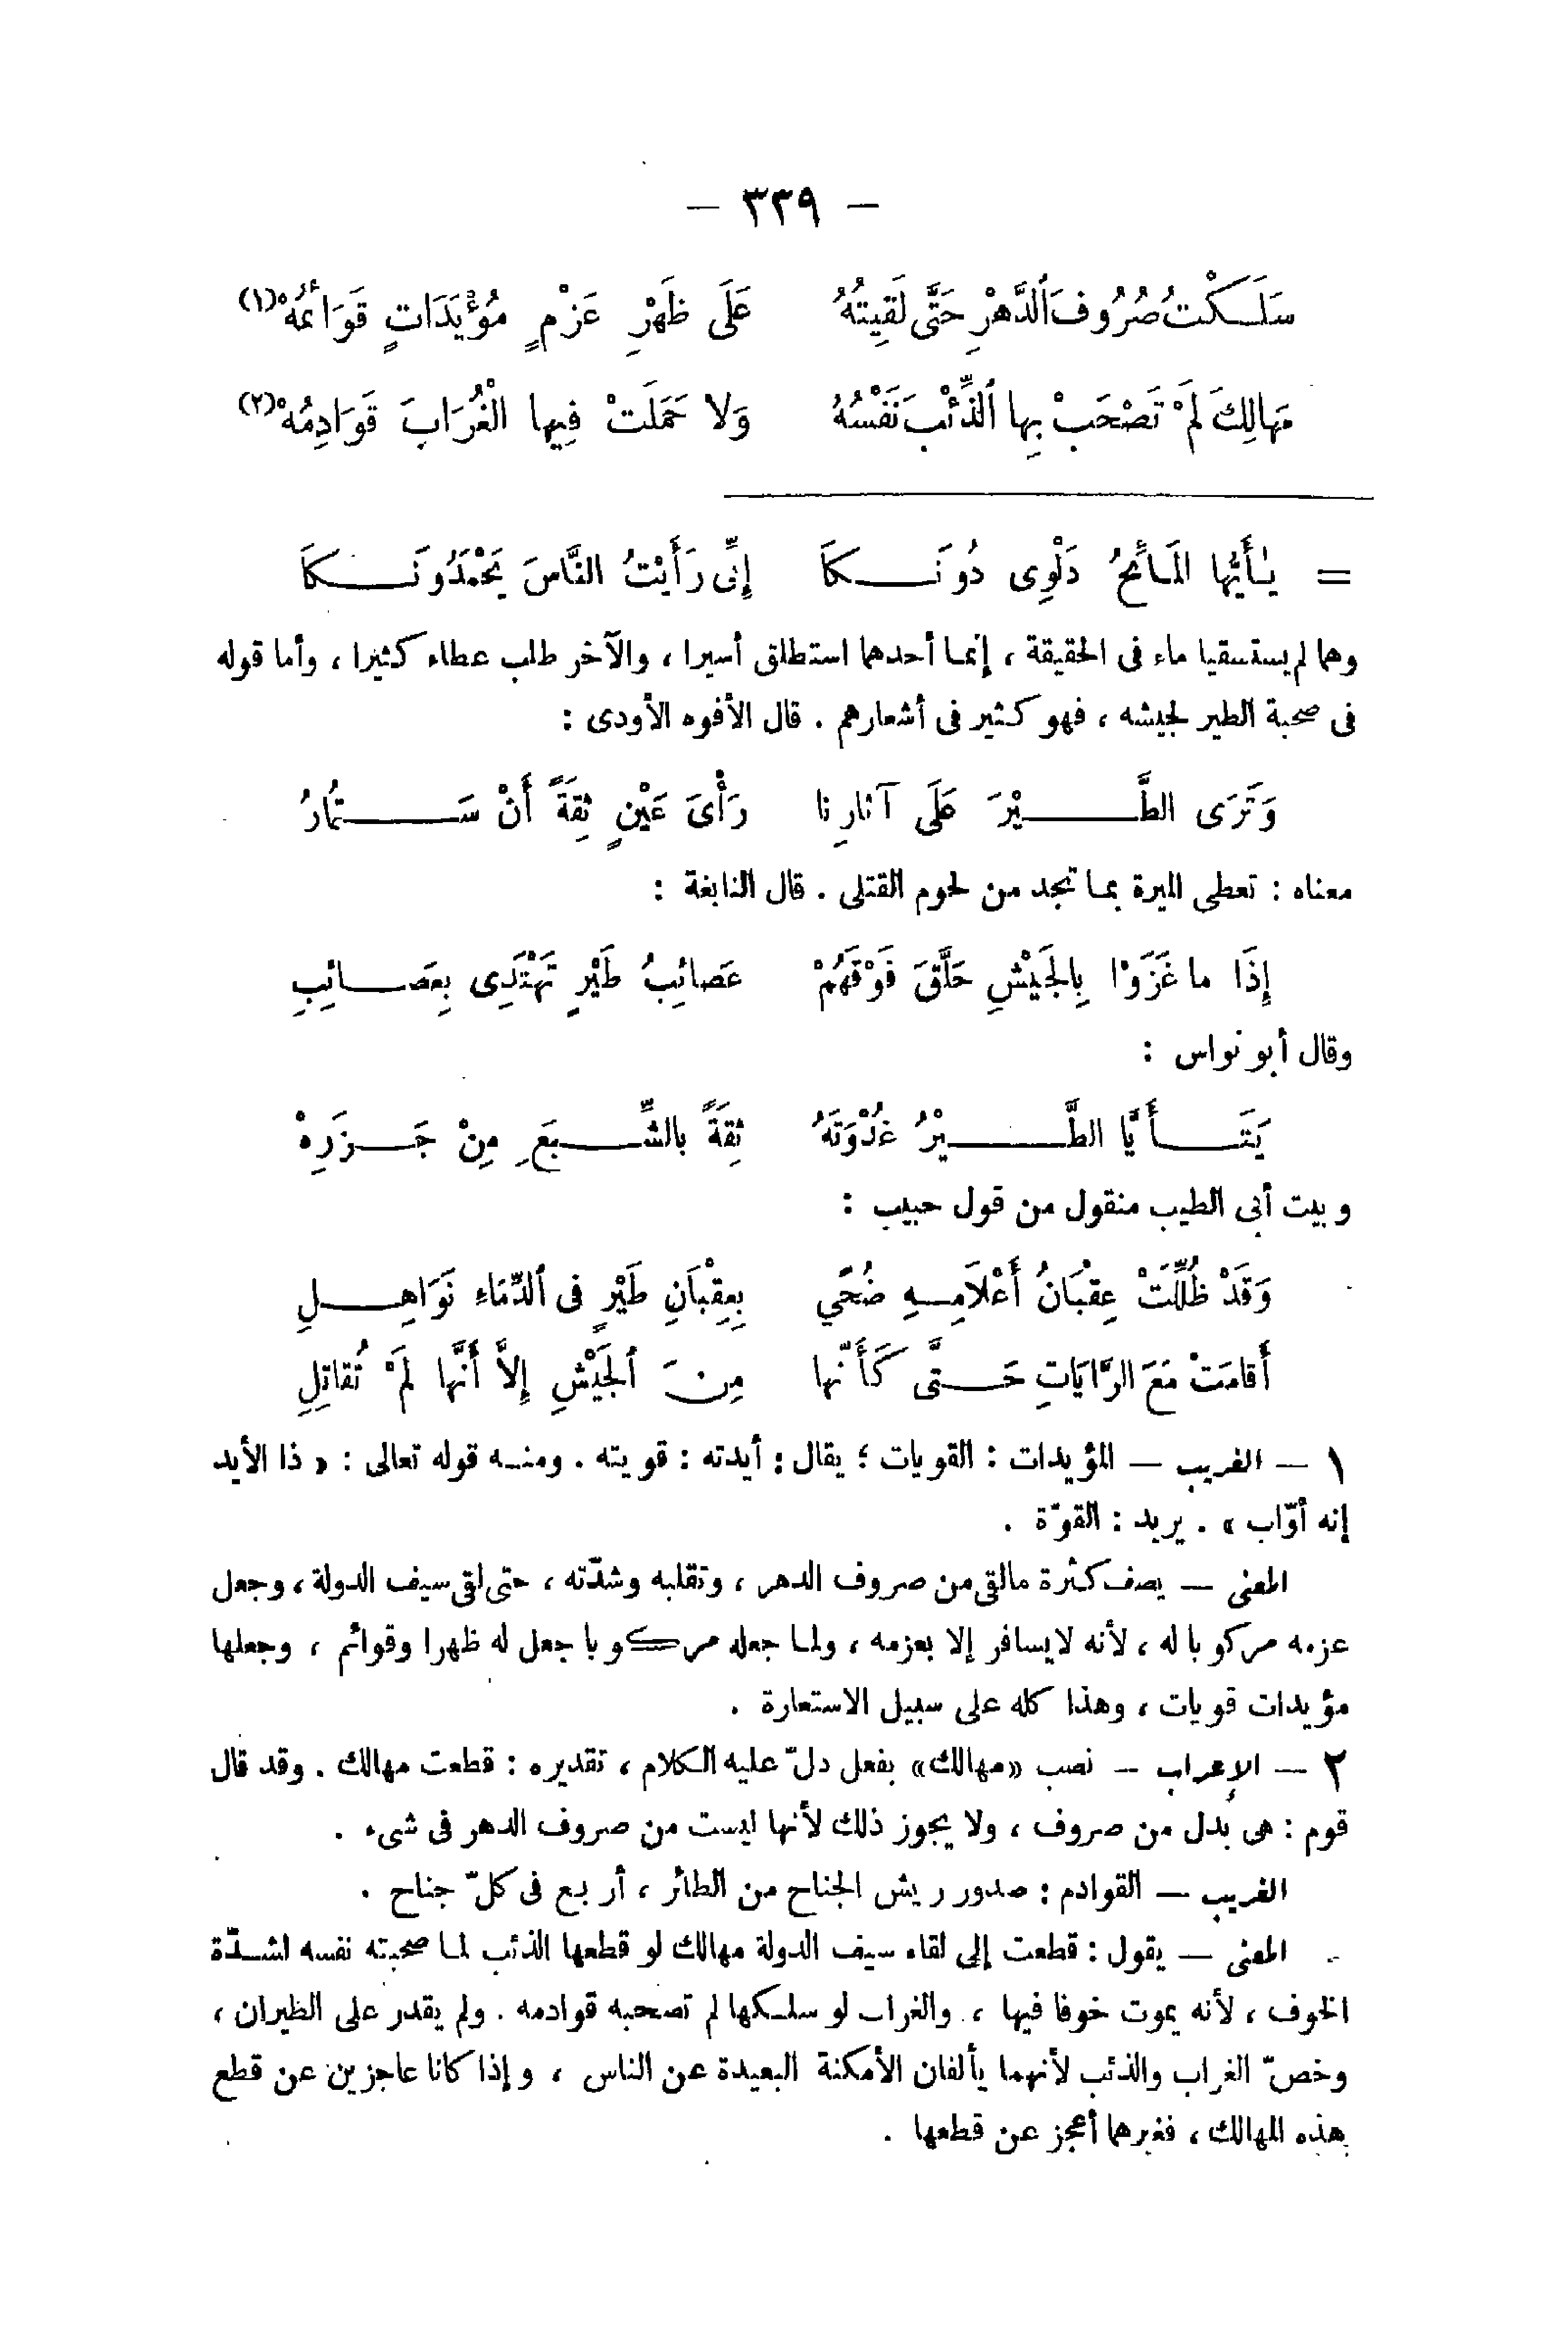 — ٣٣٩ —
سَلَكْتُ صُرُوفَ ٱلدَّهْرِ حَتَّى لَقِيتُهُ عَلَى ظَهْرِ عَزْمٍ مُؤْيَدَاتٍ قَوَائِمُهْ (١)
مَهَالِكَ لَمْ تَصْحَبْ بِها ٱلذِّئْبَ نَفْسُهُ وَلا حَمَلَتْ فِيها الْغُرَابَ قَوَادِمُهْ (٢)
= يٰأَيُّها المَائحُ دَلْوِى دُونَكَا إِنِّى رَأَيْتُ النَّاسَ يَحْمَدُونَكَا
وهما لم يستسقيا ماء فى الحقيقة ، إنما أحدهما استطلق أسيرا ، والآخر طلب عطاء كثيرا ، وأما قوله
فى صحبة الطير لجيشه ، فهو كثير فى أشعارهم . قال الأفوه الأودى :
وَتَرَى الطَّيْرَ عَلَى آثارِنا رَأْىَ عَيْنٍ ثِقَةً أَنْ سَتُمارُ
معناه : تعطى الميرة بما تجد من لحوم القتلى . قال النابغة :
إِذَا ما غَزَوْا بِالجَيْشِ حَلَّقَ فَوْقَهُمْ عَصائِبُ طَيْرٍ تَهْتَدِى بِعَصَائِبِ
وقال أبو نواس :
يَتَأَيَّا الطَّيْرُ غُدْوَتَهُ ثِقَةً بالشِّبَعِ مِنْ جَزَرِهْ
وبيت أبى الطيب منقول من قول حبيب :
وَقَدْ ظُلِّلَتْ عِقْبَانُ أَعْلَامِهِ ضُحًى بِعِقْبَانِ طَيْرٍ فى ٱلدِّمَاءِ نَوَاهِلِ
أَقامَتْ مَعَ الرَّايَاتِ حَتَّى كَأَنَّها مِنَ ٱلجَيْشِ إِلاَّ أَنَّها لَمْ تُقاتِلِ
١ — الغريب — المؤيدات : القويات ؛ يقال : أيدته : قويته . ومنه قوله تعالى : « ذا الأيد
إنه أوّاب » . يريد : القوّة .
المعنى — يصف كثرة مالقى من صروف الدهر ، وتقلبه وشدّته ، حتى لقى سيف الدولة ، وجعل
عزمه مركوبا له ، لأنه لايسافر إلا بعزمه ، ولما جعله مركوبا جعل له ظهرا وقوائم ، وجعلها
مؤيدات قويات ، وهذا كله على سبيل الاستعارة .
٢ — الإعراب — نصب «مهالك» بفعل دلّ عليه الكلام ، تقديره : قطعت مهالك . وقد قال
قوم : هى بدل من صروف ، ولا يجوز ذلك لأنها ليست من صروف الدهر فى شىء .
الغريب — القوادم : صدور ريش الجناح من الطائر ، أربع فى كلّ جناح .
المعنى — يقول : قطعت إلى لقاء سيف الدولة مهالك لو قطعها الذئب لما صحبته نفسه لشدّة
الخوف ، لأنه يموت خوفا فيها ، والغراب لو سلكها لم تصحبه قوادمه . ولم يقدر على الطيران ،
وخصّ الغراب والذئب لأنهما يألفان الأمكنة البعيدة عن الناس ، وإذا كانا عاجزين عن قطع
هذه المهالك ، فغيرهما أعجز عن قطعها .